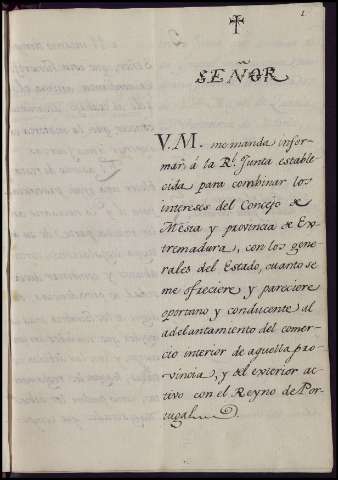 1
SEÑOR
V.M. me manda infor-
mar á la Rl. Junta estable-
cida para combinar los
intereses del Concejo de
Mesta y provincia de Ex-
tremadura, con los gene-
rales del Estado, cuanto se
me ofreciere y pareciere
oportuno y conducente al
adelantamiento del comer-
cio interior de aquella pro-
vincia, y del exterior ac-
tivo con el Reyno de Por-
tugal.